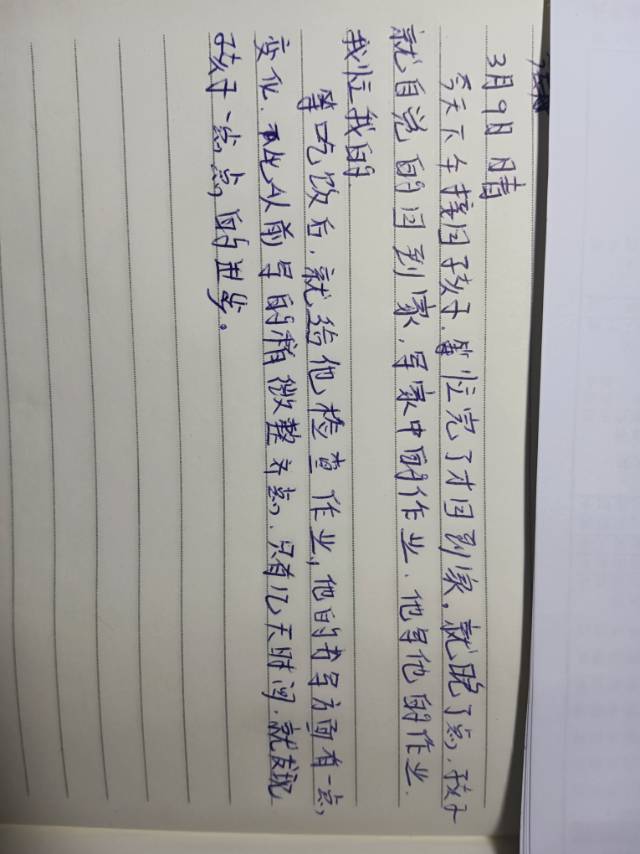 3月9日 晴
今天下午接回孩子.等忙完了才回到家。就晚了点,.孩子
就自觉的回到家.写家中的作业.他写他的作业.
我忙我的
等吃饭后.就给他检查作业,他的书写方面有一点,
变化.比从前写的稍微整齐点,.只有几天时间.就发现
孩子一点点,的进步。